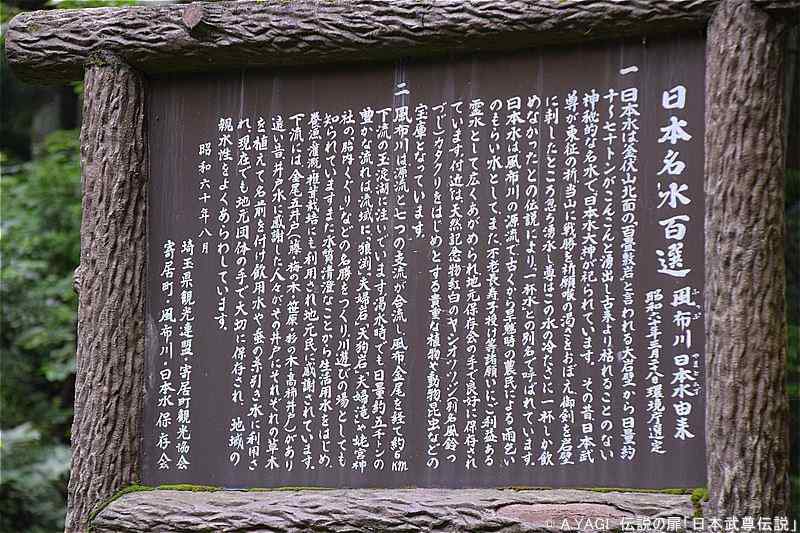 日本名水百選 風布川 日本水由来
ふっぷ
やまとみず
昭和六十年三月二十八日環境庁選定
一 日本水は釜伏山北面の「百畳敷岩」と言われる大岩壁から日量約
千〜七千トンがこんこんと湧出し古来より枯れることのない
神秘的な名水で、日本水大神が祀られています。その昔日本武
尊が東征の折当山に戦勝を祈願喉の渇きをおぼえ御剣を岩壁
に刺したところ忽ち湧水し尊はこの水の冷たさに一杯しか飲
めなかったとの伝説により、一杯水との別名で呼ばれています。
日本水は風布川の源流で古くから旱魃時の農民による雨乞い
のもらい水として、また、不老長寿子授け等諸願いにご利益ある
霊水として広くあがめられ地元保存会の手で良好に保存され
ています。付近は天然記念物紅白のヤシオツツジ(別名風鈴つ
つじ)カタクリをはじめとする貴重な植物や動物、昆虫などの
宝庫となっています。
二 風布川は源流と七つの支流が合流し風布、金尾を経て約6km
下流の玉淀湖に注いでいます。渇水時でも日量約五千トンの
豊かな流れは流域に「狼渕」「夫婦岩」「天狗岩」「夫婦滝」「姥宮神
社の胎内くぐり」などの名勝をつくり、川遊びの場としても
知られています。また水質清澄なことから生活用水をはじめ、
養魚、灌漑、椎茸栽培にも利用され地元民に感謝されています。
下流には、金尾五井戸(藤・梅の木・笹原・杉の木・高柿井戸)があり
遠い昔井戸水に感謝した人々がその井戸にそれぞれの草木
を植えて名前を付け飲用水や蚕の糸引き水に利用さ
れ、現在でも地元団体の手で大切に保存され、地域の
親水性をよくあらわしています。
昭和六十年八月
埼玉県観光連盟・寄居町観光協会
寄居町・風布川・日本水保存会
© A.YAGI 伝説の扉「日本武尊伝説」